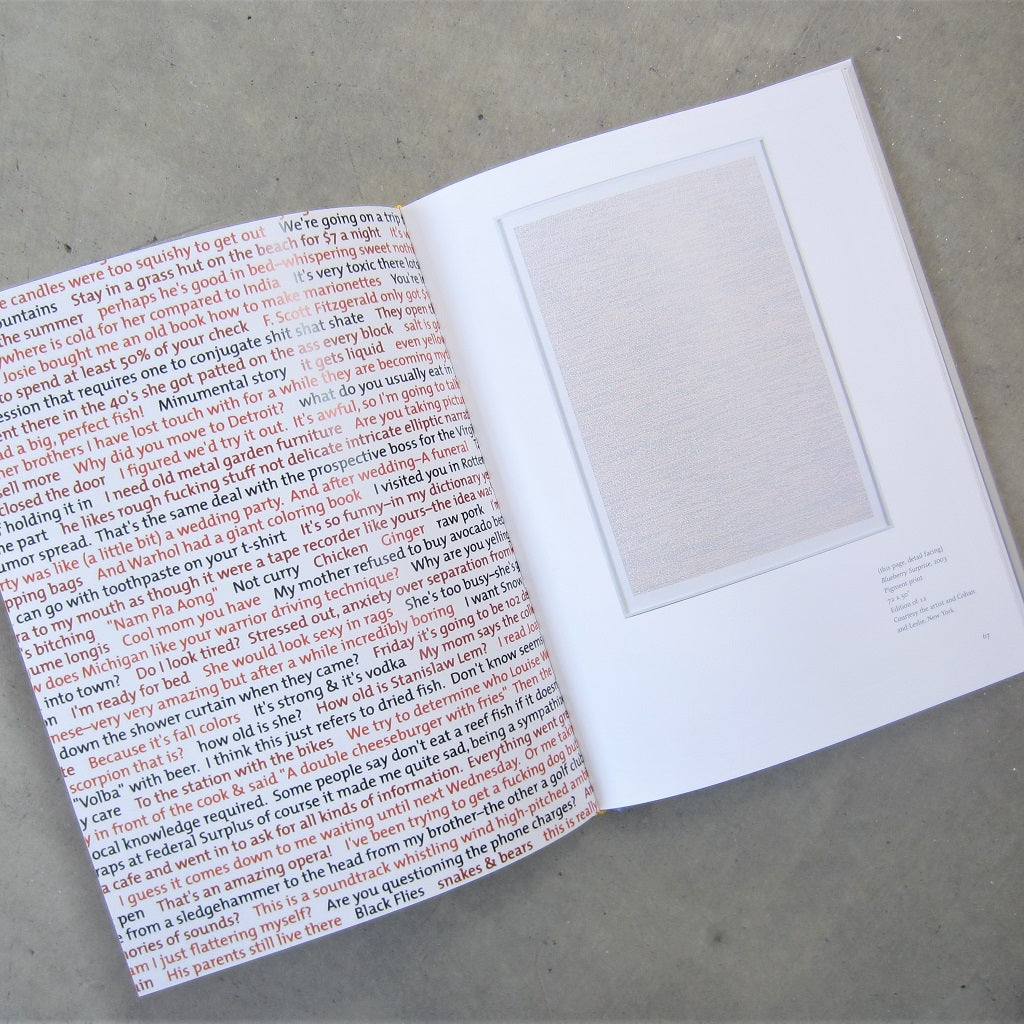 We're going on a trip
e candles were too squishy to get out
ountains Stay in a grass hut on the beach for $7 a night It's
the summer perhaps he's good in bed–whispering sweet noth
where is cold for her compared to India It's very toxic there
Josie bought me an old book how to make marionettes You're
to spend at least 50% of your check F. Scott Fitzgerald only got
ession that requires one to conjugate shit shat shate They open
ent there in the 40's she got patted on the ass every block salt is
ad a big, perfect fish! Minumental story it gets liquid even
her brothers I have lost touch with for a while they are becoming
sell more Why did you move to Detroit? what do you usually eat in
closed the door I figured we'd try it out. It's awful, so I'm going to
holding it in I need old metal garden furniture Are you taking
he part he likes rough fucking stuff not delicate intricate elliptic
umor spread. That's the same deal with the prospective boss for the
rty was like (a little bit) a wedding party. And after wedding–A funeral
ping bags And Warhol had a giant coloring book I visited you in
can go with toothpaste on your t-shirt It's so funny–in my dictionary
ra to my mouth as though it were a tape recorder like yours–the idea was
's bitching "Nam Pla Aong" Not curry Chicken Ginger raw pork
ume longis Cool mom you have My mother refused to buy avocado
w does Michigan like your warrior driving technique? Why are you yelling
into town? Do I look tired? Stressed out, anxiety over separation from
n I'm ready for bed She would look sexy in rags She's too busy–she's
nese–very very amazing but after a while incredibly boring I want
down the shower curtain when they came? Friday it's going to be 102
te Because it's fall colors It's strong & it's vodka My mom says the
scorpion that is? how old is she? How old is Stanislaw Lem? I read
"Volba" with beer. I think this just refers to dried fish. Don't know
y care To the station with the bikes We try to determine who Louise
y in front of the cook & said "A double cheeseburger with fries" Then the
ocal knowledge required. Some people say don't eat a reef fish if it doesn
raps at Federal Surplus of course it made me quite sad, being a
a cafe and went in to ask for all kinds of information. Everything went
I guess it comes down to me waiting until next Wednesday. Or me
pen That's an amazing opera! I've been trying to get a fucking dog
e from a sledgehammer to the head from my brother–the other a golf club
ories of sounds? This is a soundtrack whistling wind high-pitched
am I just flattering myself? Are you questioning the phone charges?
in His parents still live there Black Flies snakes & bears this is really
(this page, detail facing)
Blueberry Surprise, 2003
Pigment print
72 x 50"
Edition of 12
Courtesy the artist and Cohan
and Leslie, New York
67